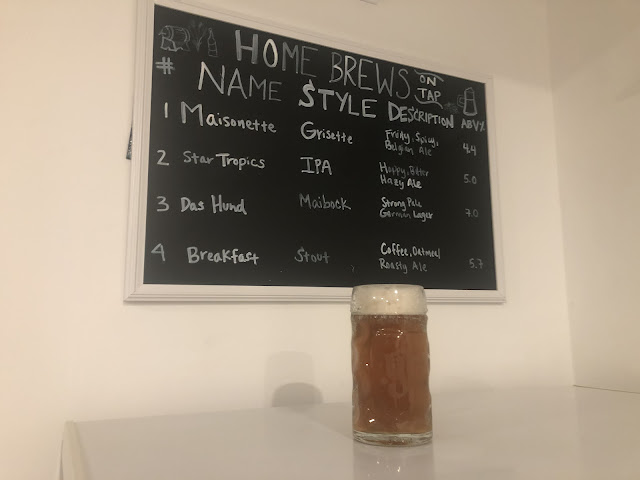 HOME BREWS ON TAP
# NAME STYLE DESCRIPTION ABV%
1 Maisonette Grisette Fruity, Spicy, Belgian Ale 4.4
2 Star Tropics IPA Hoppy, Bitter Hazy Ale 5.0
3 Das Hund Maibock Strong Pale German Lager 7.0
4 Breakfast Stout Coffee, Oatmeal Roasty Ale 5.7